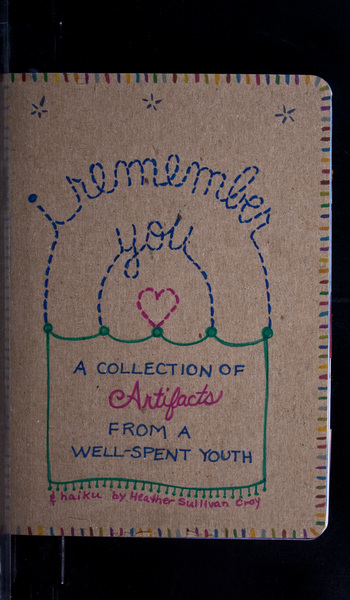 i remember
you
A COLLECTION OF
Artifacts
FROM A
WELL-SPENT YOUTH
& haiku by Heather Sullivan Croy